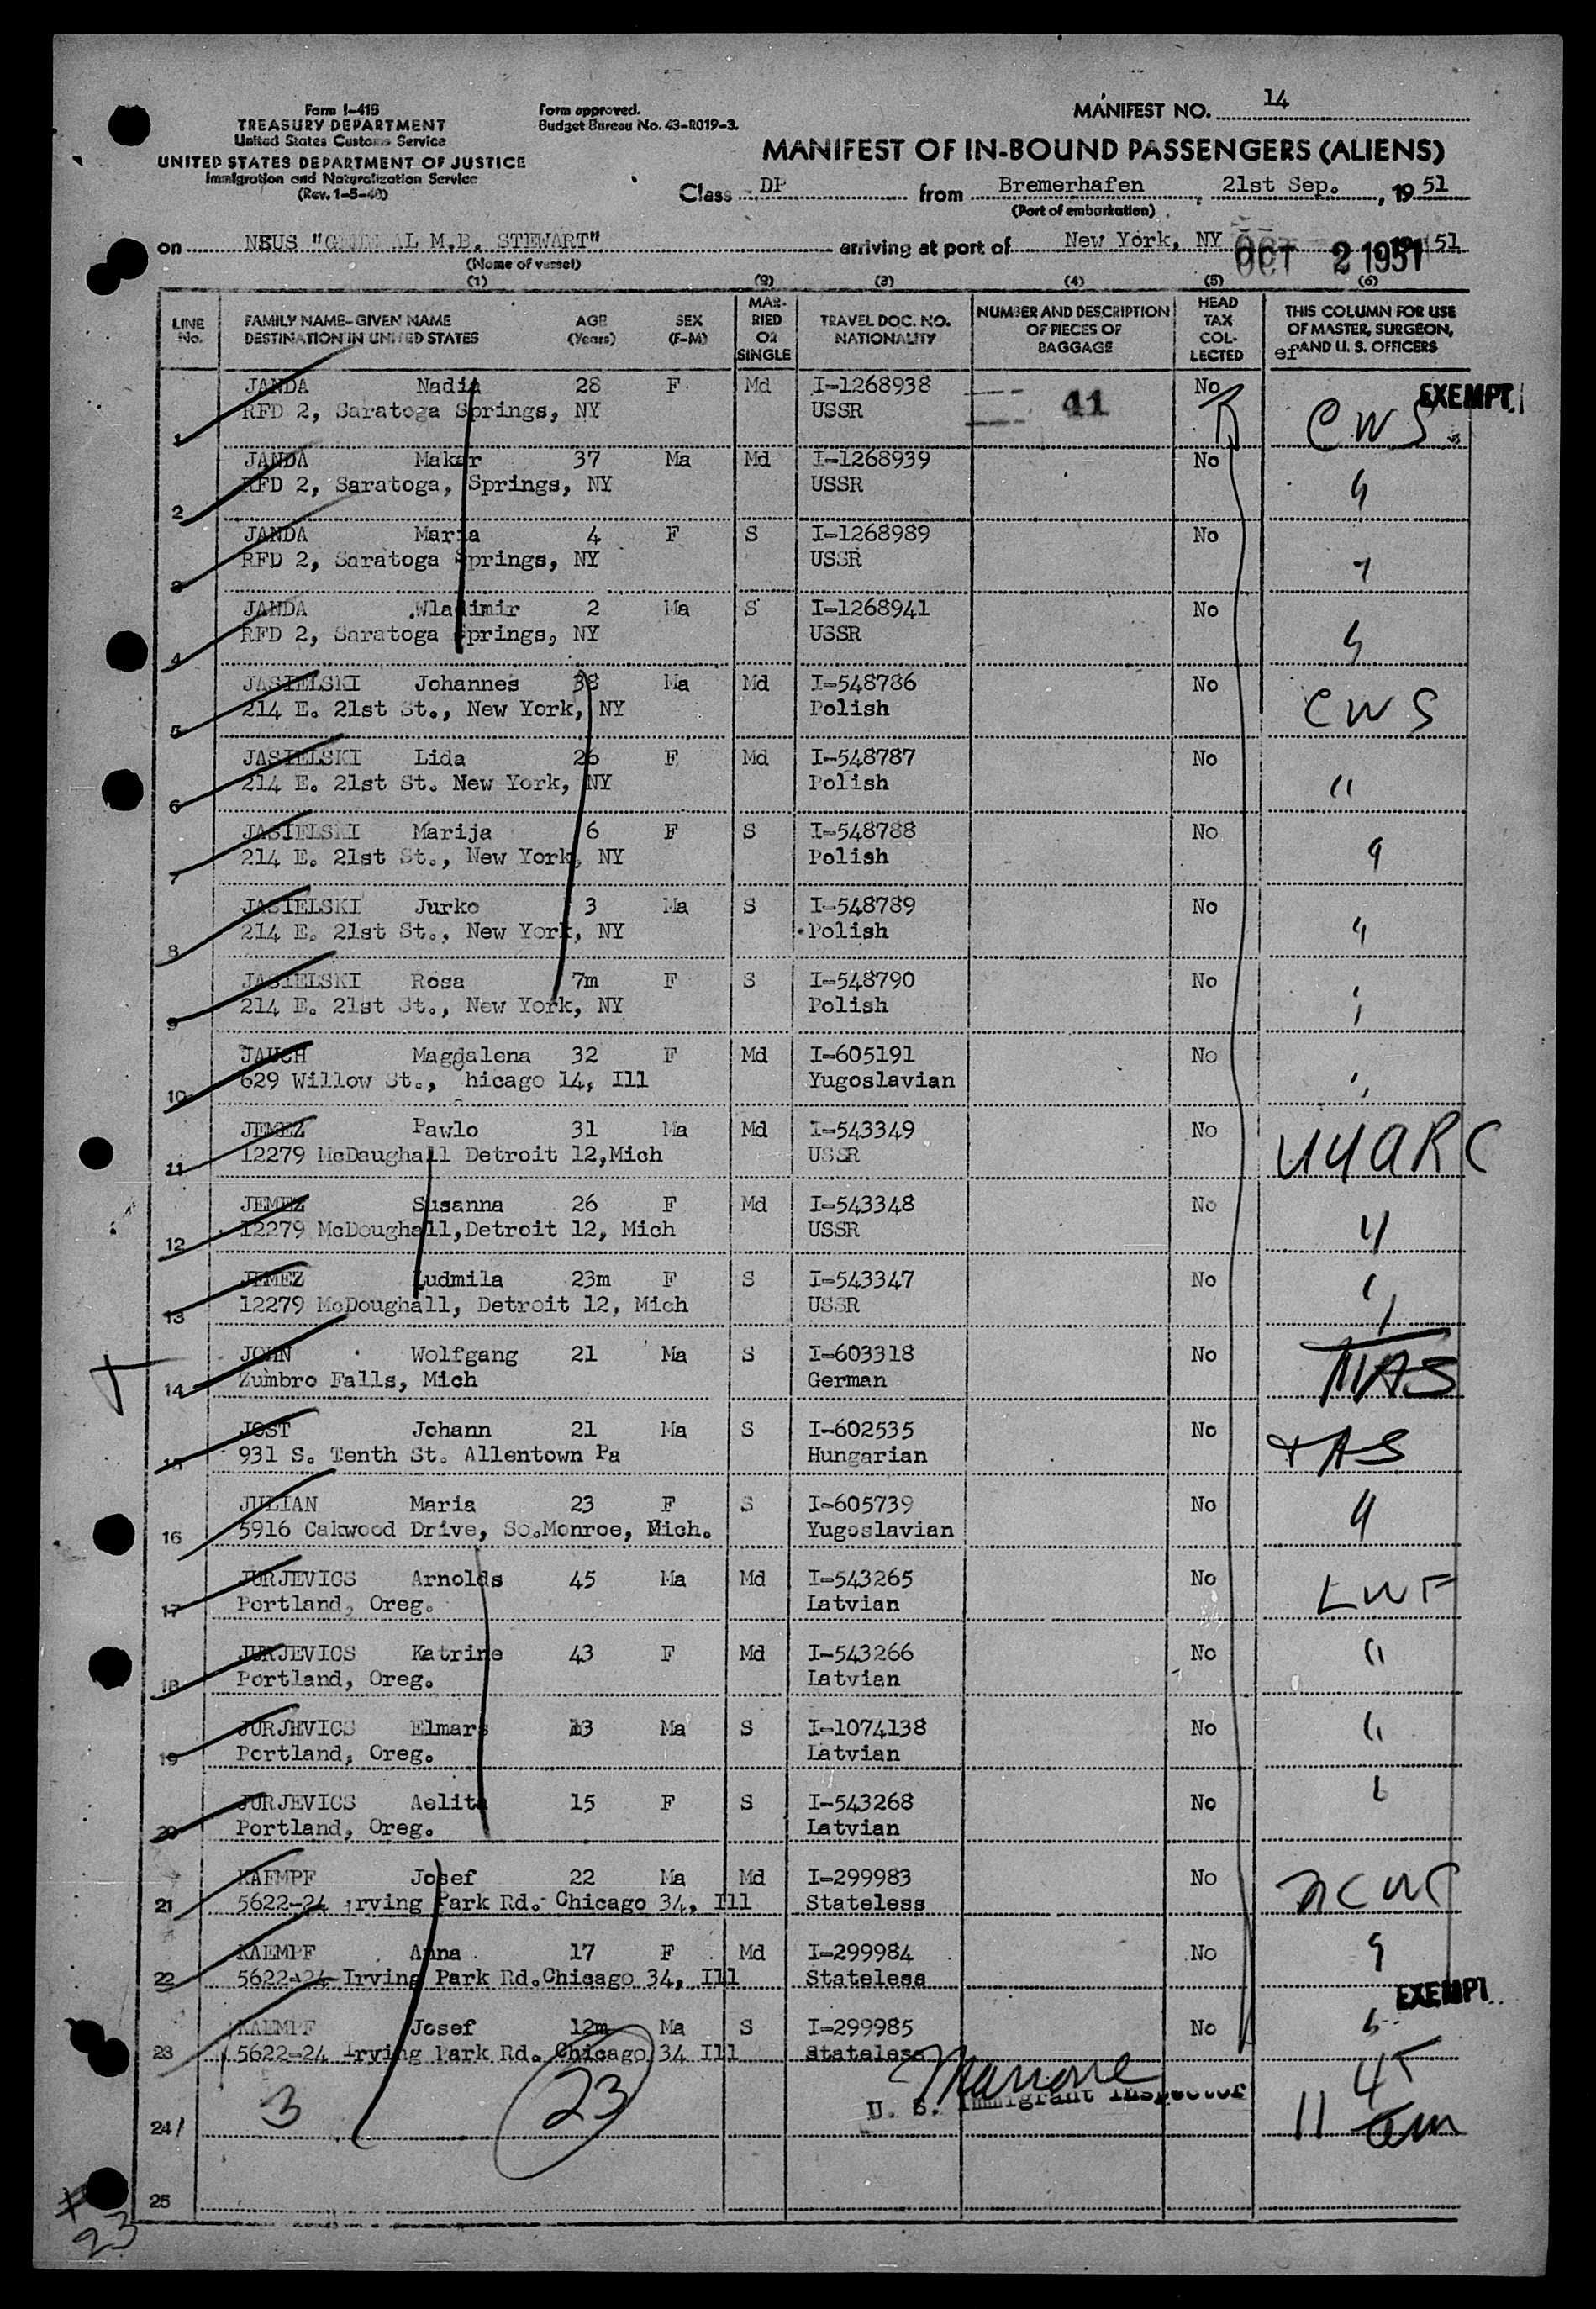 Form I-418
TREASURY DEPARTMENT
United States Customs Service
UNITED STATES DEPARTMENT OF JUSTICE
Immigration and Naturalization Service
(Rev. 1-5-48)
Form approved.
Budget Bureau No. 43-R019-3.
MANIFEST NO. 14
MANIFEST OF IN-BOUND PASSENGERS (ALIENS)
Class DP from Bremerhafen, 21st Sep., 1951
(Port of embarkation)
on NSUS "GENERAL M.B. STEWART" arriving at port of New York, NY 51
OCT 2 1951
(Name of vessel)
(1) (2) (3) (4) (5) (6)
LINE No. FAMILY NAME-GIVEN NAME DESTINATION IN UNITED STATES AGE (Years) SEX (F-M) MARRIED OR SINGLE TRAVEL DOC. NO. NATIONALITY NUMBER AND DESCRIPTION OF PIECES OF BAGGAGE HEAD TAX COLLECTED THIS COLUMN FOR USE OF MASTER, SURGEON, AND U. S. OFFICERS
ef
1 JANDA Nadia 28 F Md I-1268938 41 No CWS EXEMPT
RFD 2, Saratoga Springs, NY USSR
2 JANDA Makar 37 Ma Md I-1268939 No "
RFD 2, Saratoga, Springs, NY USSR
3 JANDA Maria 4 F S I-1268989 No "
RFD 2, Saratoga Springs, NY USSR
4 JANDA Wladimir 2 Ma S I-1268941 No "
RFD 2, Saratoga Springs, NY USSR
5 JASIELSKI Johannes 38 Ma Md I-548786 No CWS
214 E. 21st St., New York, NY Polish
6 JASIELSKI Lida 26 F Md I-548787 No "
214 E. 21st St. New York, NY Polish
7 JASIELSKI Marija 6 F S I-548788 No "
214 E. 21st St., New York, NY Polish
8 JASIELSKI Jurko 3 Ma S I-548789 No "
214 E. 21st St., New York, NY Polish
9 JASIELSKI Rosa 7m F S I-548790 No "
214 E. 21st St., New York, NY Polish
10 JAUCH Magdalena 32 F Md I-605191 No "
629 Willow St., Chicago 14, Ill Yugoslavian
11 JEMEZ Pawlo 31 Ma Md I-543349 No UUARC
12279 McDaughall Detroit 12,Mich USSR
12 JEMEZ Susanna 26 F Md I-543348 No "
12279 McDoughall,Detroit 12, Mich USSR
13 JEMEZ Ludmila 23m F S I-543347 No "
12279 McDoughall, Detroit 12, Mich USSR
14 JOHN Wolfgang 21 Ma S I-603318 No
Zumbro Falls, Mich German
15 JOST Johann 21 Ma S I-602535 No
931 S. Tenth St. Allentown Pa Hungarian
16 JULIAN Maria 23 F S I-605739 No "
5916 Oakwood Drive, So.Monroe, Mich. Yugoslavian
17 JURJEVICS Arnolds 45 Ma Md I-543265 No LWF
Portland, Oreg. Latvian
18 JURJEVICS Katrine 43 F Md I-543266 No "
Portland, Oreg. Latvian
19 JURJEVICS Elmars 13 Ma S I-1074138 No "
Portland, Oreg. Latvian
20 JURJEVICS Aelita 15 F S I-543268 No "
Portland, Oreg. Latvian
21 KAEMPF Josef 22 Ma Md I-299983 No
5622-24 Irving Park Rd. Chicago 34, Ill Stateless
22 KAEMPF Anna 17 F Md I-299984 No "
5622-24 Irving Park Rd.Chicago 34, Ill Stateless
EXEMPT
23 KAEMPF Josef 12m Ma S I-299985 No "
5622-24 Irving Park Rd. Chicago 34 Ill Stateless
3 23
U. S. Immigrant Inspector
24
25
23